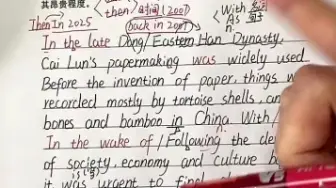 其昂贵程度。
then
时间(2007
back in 2007
With
名词
As
句子
n.
Then In 2025
In the late Dong/Eastern Han Dynasty,
Cai Lun's papermaking was widely used
Before the invention of paper, things w
recorded mostly by tortoise shells, an
bones and bamboo in China. With/
n.
In the wake of/Following the de
of society, economy and culture b
it was urgent to find